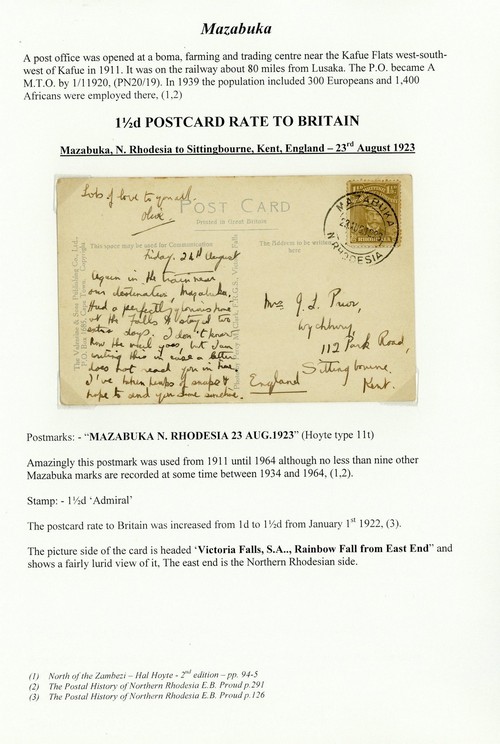 Mazabuka
A post office was opened at a boma, farming and trading centre near the Kafue Flats west-south-
west of Kafue in 1911. It was on the railway about 80 miles from Lusaka. The P.O. became A
M.T.O. by 1/11920, (PN20/19). In 1939 the population included 300 Europeans and 1,400
Africans were employed there, (1,2)
1½d POSTCARD RATE TO BRITAIN
Mazabuka, N. Rhodesia to Sittingbourne, Kent, England – 23rd August 1923
Lots of love to you all.
Olive.
POST CARD
Printed in Great Britain
This space may be used for Communication
The Address to be written here
The Valentine & Sons Publishing Co., Ltd.,
P.O. Box 1685, Cape Town. Copyright
MAZABUKA
23 AUG
N. RHODESIA
RHODESIA
Friday. 24th August
Again in the train near
our destination, Mazabuka.
Had a perfectly glorious time
at the Falls & stayed two
extra days. I don't know
how the mail goes, but I am
writing this in case a letter
does not reach you in time.
I've taken heaps of snaps &
hope to send you some sometime.
Mrs J. L. Prior,
112 Park Road,
Sittingbourne.
Kent.
England
Postmarks: - “MAZABUKA N. RHODESIA 23 AUG.1923” (Hoyte type 11t)
Amazingly this postmark was used from 1911 until 1964 although no less than nine other
Mazabuka marks are recorded at some time between 1934 and 1964, (1,2).
Stamp: - 1½d ‘Admiral’
The postcard rate to Britain was increased from 1d to 1½d from January 1st 1922, (3).
The picture side of the card is headed ‘Victoria Falls, S.A.., Rainbow Fall from East End” and
shows a fairly lurid view of it, The east end is the Northern Rhodesian side.
(1) North of the Zambezi – Hal Hoyte - 2nd edition – pp. 94-5
(2) The Postal History of Northern Rhodesia E.B. Proud p.291
(3) The Postal History of Northern Rhodesia E.B. Proud p.126